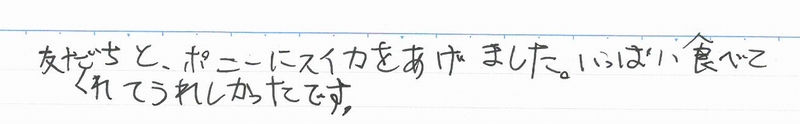 友だちと、ポニーにスイカをあげました。いっぱい食べて
くれてうれしかったです。